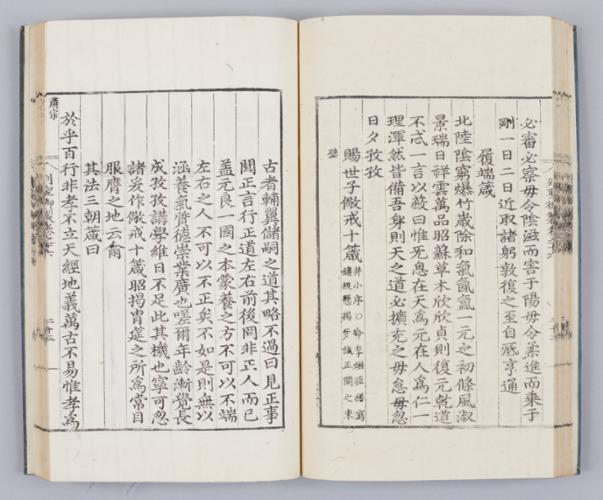 必審必察毋令陰滋而害于陽毋令柔進而乘于
剛一日二日近取諸躬敦復之至自底亨通
履端箴
北陸陰窮爆竹歲除和氣氤氳一元之初條風淑
景瑞日祥雲萬品昭蘇草木欣欣貞則復元乾道
不忒一言以蔽曰惟無息在天為元在人為仁一
理渾然皆備吾身則天之道必擴充之毋怠毋忽
日夕孜孜
賜世子儆戒十箴
并小序○命李
縷板懸揭于誠正閤之東
壁
古者輔翼儲嗣之道其略不過曰見正事
聞正言行正道左右前後罔非正人而已
盖元良一國之本蒙養之方不可以不端
左右之人不可以不正矣不如是則無以
涵養氣質德崇業廣也嗟爾年齡漸覺長
成孜孜講學維日不足此其機也寧可忽
諸爰作儆戒十箴昭揭胄筵之所為常目
服膺之地云爾
其法三朝箴曰
於乎百行非孝不立天經地義萬古不易惟孝為
肅宗
列聖御製卷